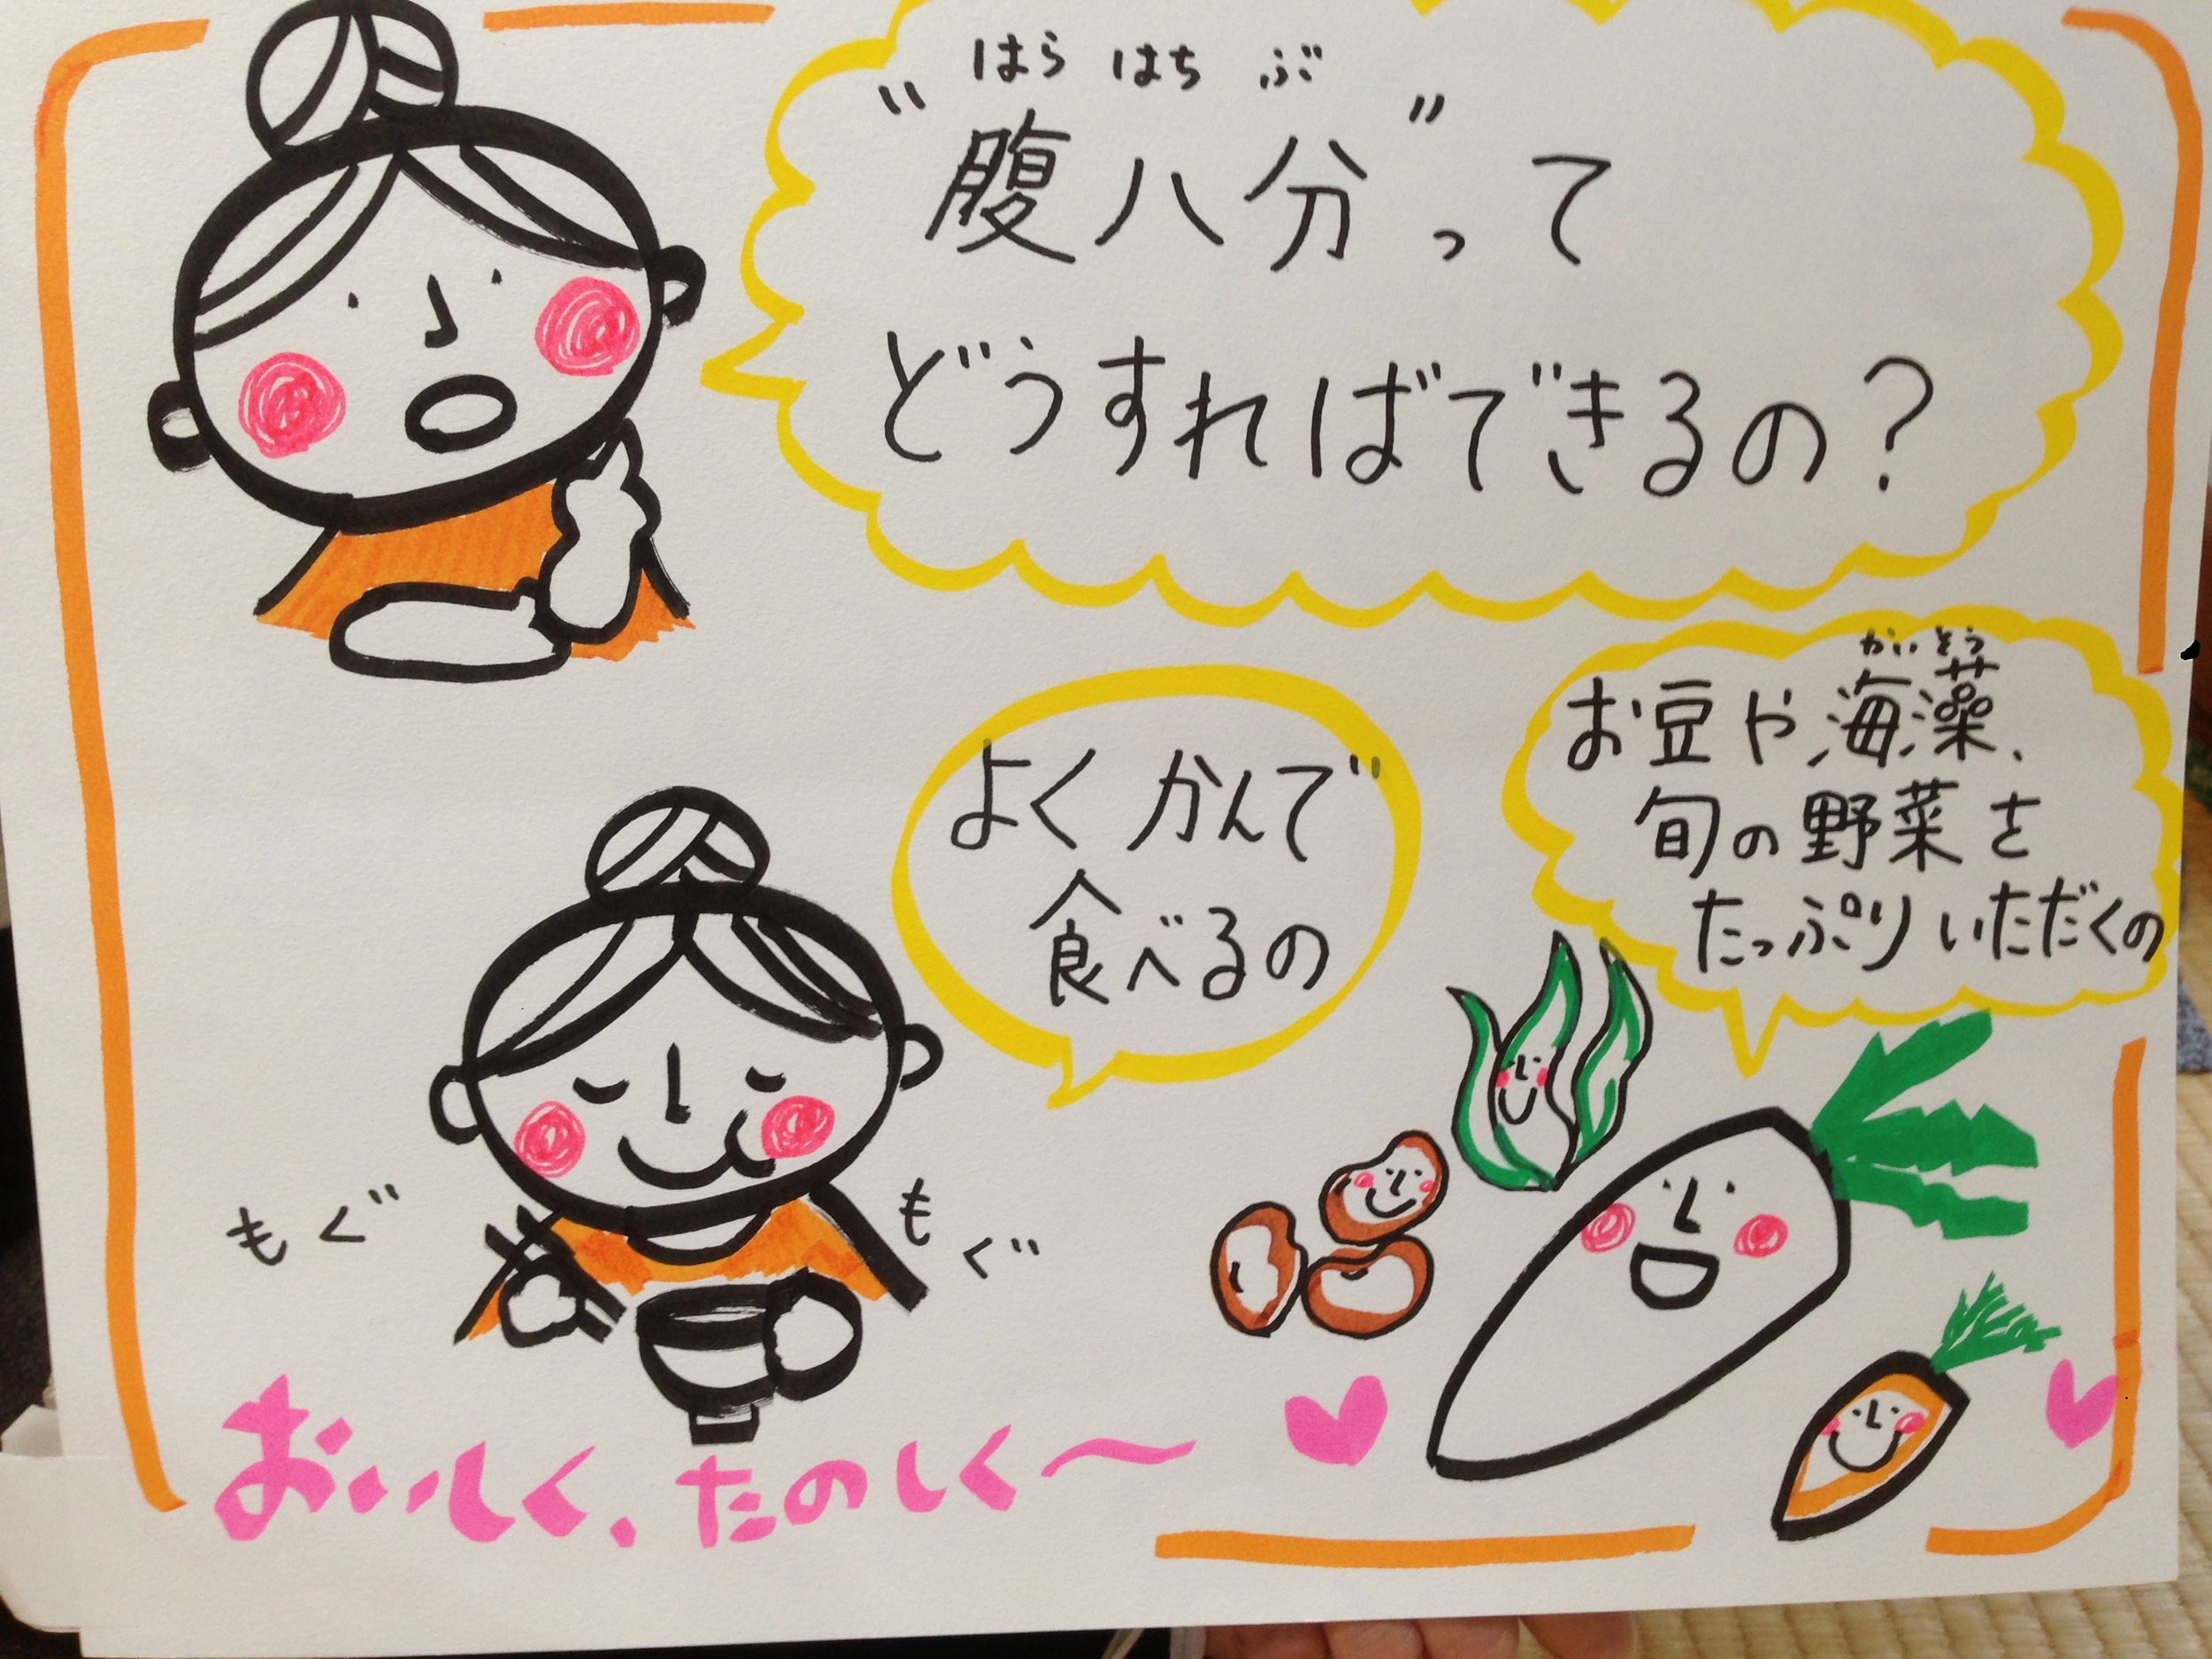 はら はち ぶ
"腹八分"って
どうすればできるの?
よくかんで
食べるの
かいそう
お豆や海藻、
旬の野菜を
たっぷりいただくの
もぐ
もぐ
おいしく、たのしく〜